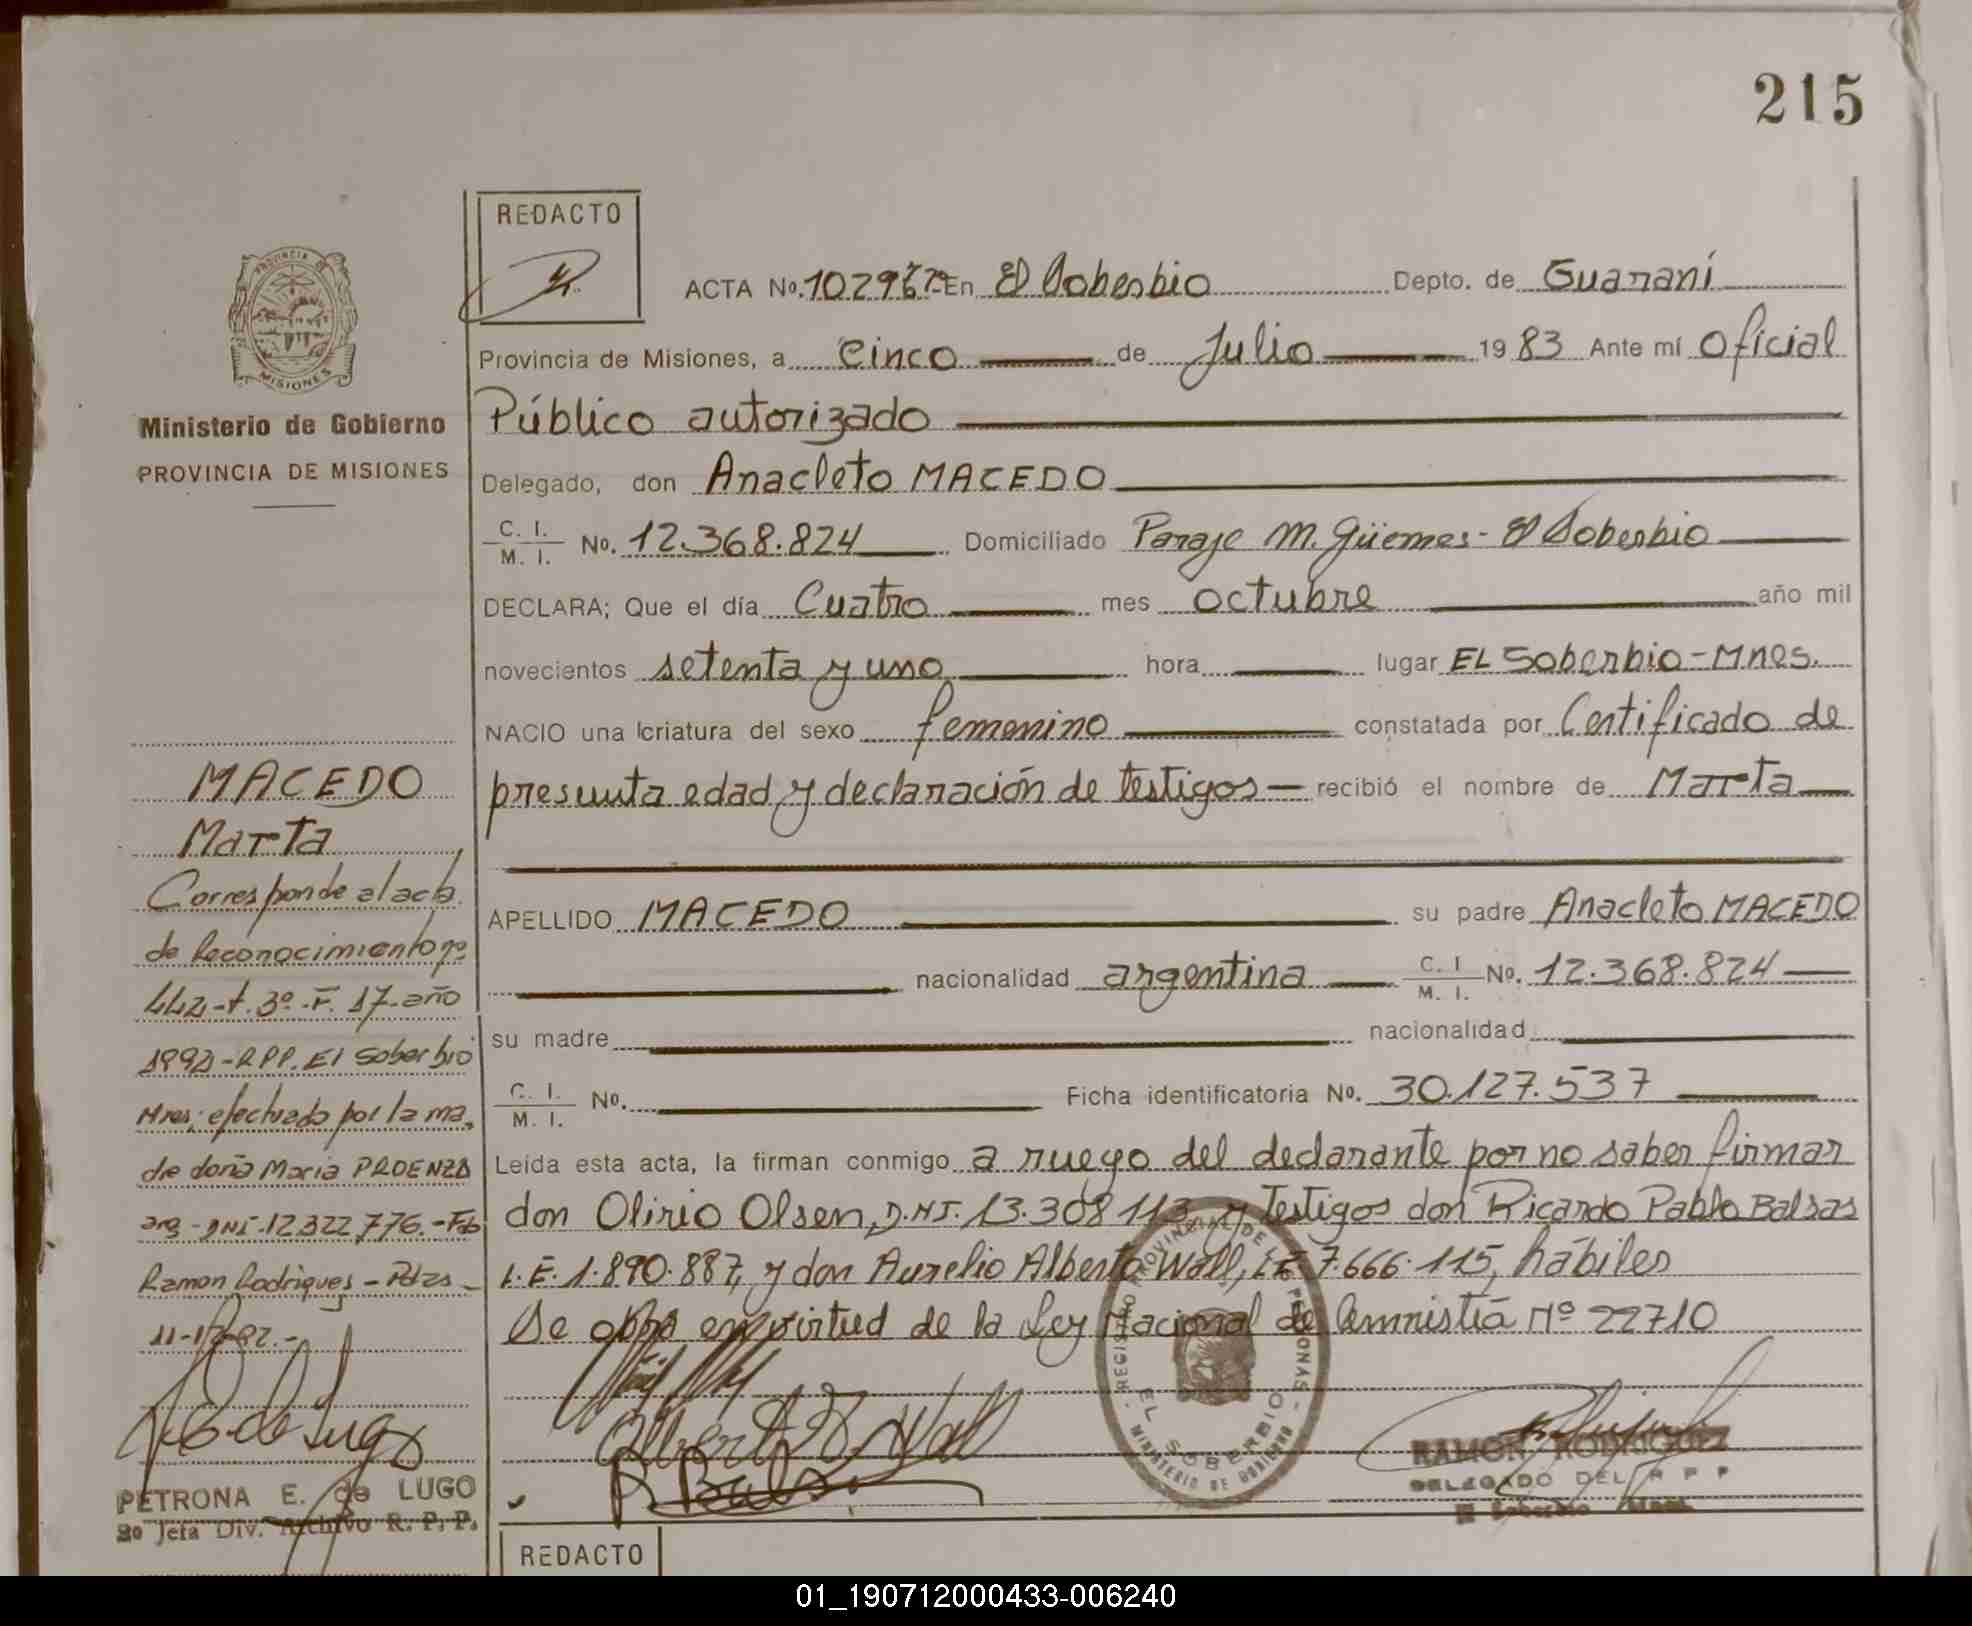 215
REDACTO
PROVINCIA DE
MISIONES
Ministerio de Gobierno
PROVINCIA DE MISIONES
ACTA No. En El Soberbio Depto. de Guaraní
Provincia de Misiones, a Cinco de Julio 1983 Ante mí Oficial
Público autorizado
Delegado, don Anacleto MACEDO
C. I.
M. I. No. 12.368.824 Domiciliado Paraje M. Güemes - El Soberbio
DECLARA; Que el día Cuatro mes octubre año mil
novecientos setenta y uno hora lugar EL Soberbio - Mnes.
NACIO una criatura del sexo femenino constatada por Certificado de
presunta edad y declaración de testigos — recibió el nombre de Marta
APELLIDO MACEDO su padre Anacleto MACEDO
nacionalidad argentina C. I. M. I. No. 12.368.824
su madre nacionalidad
C. I.
M. I. No. Ficha identificatoria No. 30.127.537
Leída esta acta, la firman conmigo a ruego del declarante por no saber firmar
don Olirio Olsen, D.N.I. 13.308.113 y Testigos don Ricardo Pablo Balsas
L.E. 1.890.887, y don Aurelio Alberto Wall, L.E. 7.666.115, hábiles
Se obra en virtud de la Ley Nacional de Amnistía Nº 22710
MACEDO
Marta
Corresponde al acta
de Reconocimiento nº
442 - t. 3º - F. 17 - año
1992 - RPP. El Soberbio
Mnes; efectuado por la ma,
dre doña Maria PROENZA
arg - DNI. 12.322.776. - Fdo
Ramon Rodrigues - Pdas -
PETRONA E. de LUGO
2º Jefa Div. Archivo R. P. P.
REGISTRO PROVINCIAL DE PERSONAS
EL SOBERBIO
MINISTERIO DE GOBIERNO
RAMON RODRIGUEZ
DELEGADO DEL R P P
El Soberbio Mnes.
REDACTO
01_190712000433-006240